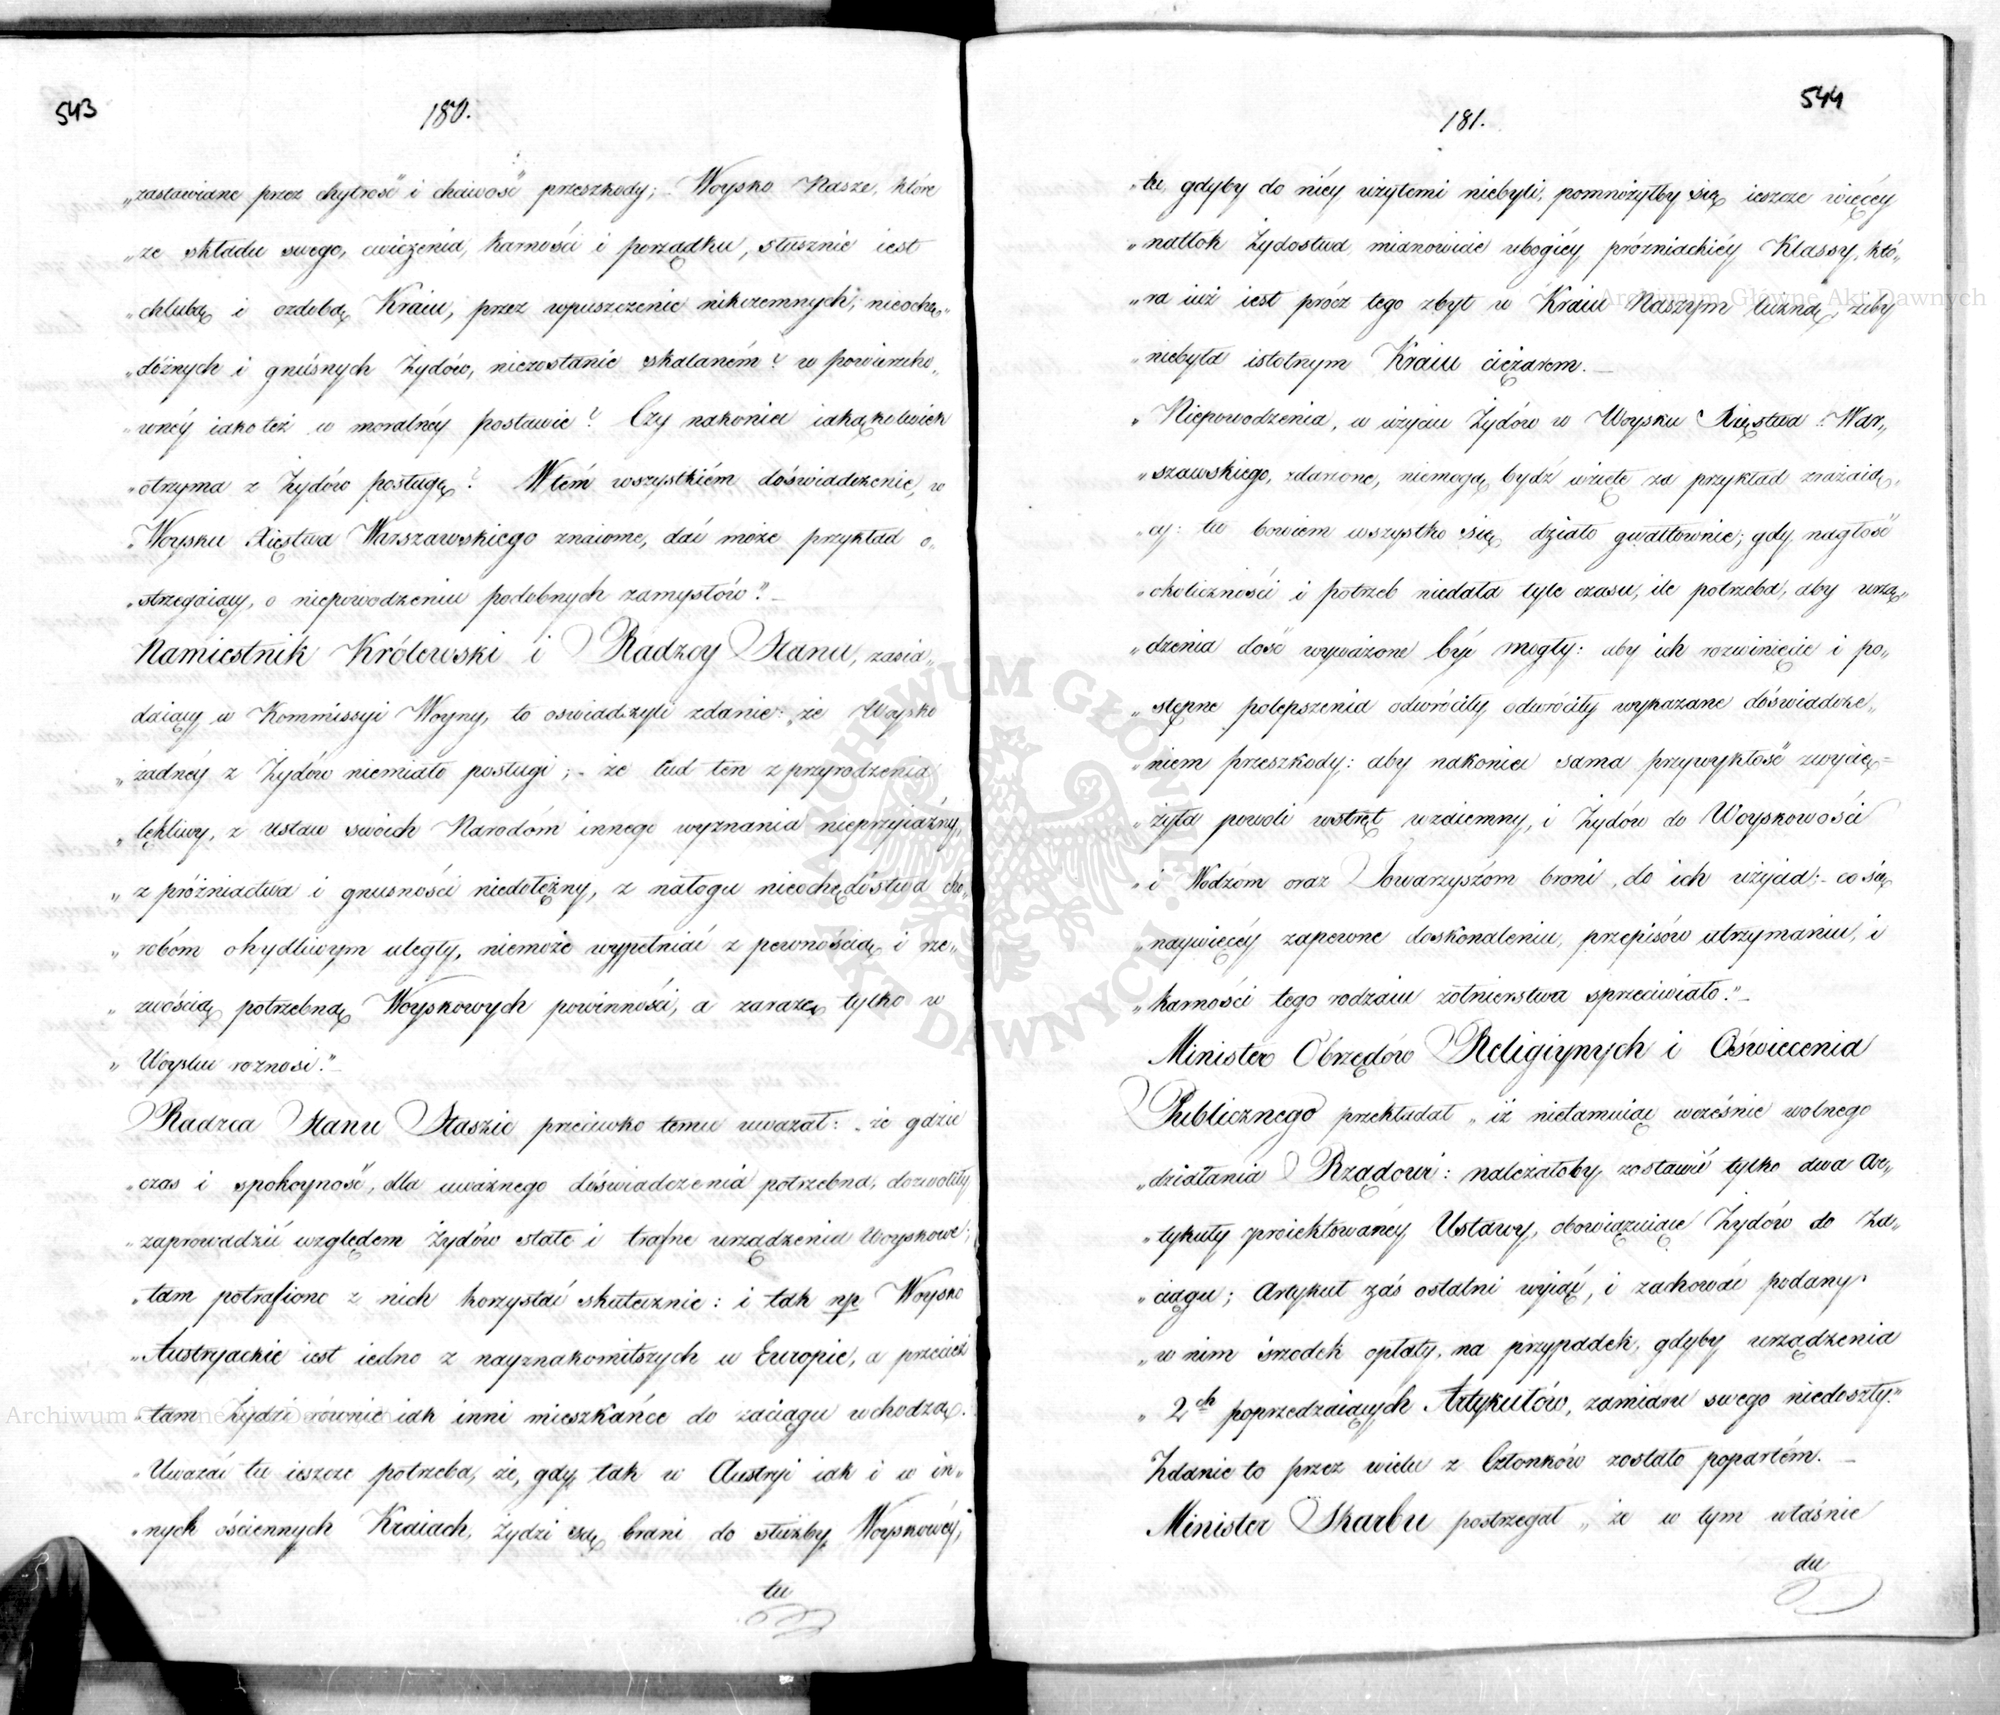 543
180.
„zastawiane przez chytrość i chciwość przeszkody; Woysko Nasze, które
„ze składu swego, cwiczenia, karności i porządku, słusznie iest
„chlubą i ozdobą Kraiu, przez wpuszczenie nikczemnych, nieochę„
„dóżnych i gnuśnych Żydów, niezostanie skalaném? w powierzcho„
„wnéy iako też w moralnéy postawie? Czy nakoniec iakąkolwiek
„otrzyma z Żydów posługę? W tém wszystkiém doświadczenie, w
„Woysku Xięstwa Warszawskiego znaiome, dać może przykład o„
„strzegaiący, o niepowodzeniu podobnych zamysłów."–
Namiestnik Królewski i Radzcy Stanu, zasia„
daiący w Kommissyi Woyny, to oswiadczyli zdanie: „że Woysko
„żadnéy z Żydów niemiało posługi; – że lud ten z przyrodzenia
„lękliwy, z ustaw swoich Narodóm innego wyznania nieprzyiaźny,
„z próżniactwa i gnusności niedołężny, z nałogu nieochędóstwa cho„
„robóm ohydliwym uległy, niemoże wypełniać z pewnością i rze„
„zwością potrzebną Woyskowych powinności, a zarazę tylko w
„Woysku roznosi."–
Radzca Stanu Staszic przeciwko temu uważał: „że gdzie
„czas i spokoyność, dla uważnego doświadczenia potrzebna, dozwoliły
„zaprowadzić względem Żydów stałe i trafne urządzenia Woyskowe;
„tam potrafiono z nich korzystać skutecznie: i tak np Woysko
„Austryackie iest iedno z nayznakomitszych w Europie, a przecież
„tam Żydzi równie iak inni mieszkańce do zaciągu wchodzą.
„Uważać tu ieszcze potrzeba, że, gdy tak w Austryi iak i w in„
„nych ościennych Kraiach, Żydzi są brani do służby Woyskowéy,
tu
544
181.
„tu, gdyby do niéy użytemi niebyli, pomnożyłby się ieszcze więcéy
„natłok Żydostwa mianowicie ubogiéy próżniackiéy Klassy, któ„
„ra iuż iest prócz tego zbyt w Kraiu Naszym liczną, żeby
„niebyła istotnym Kraiu ciężarem.–
„Niepowodzenia, w użyciu Żydów w Woysku Xięstwa War„
„szawskiego, zdarzone, niemogą bydź wzięte za przykład zrażaią„
„cy: tu bowiem wszystko się działo gwałtownie; gdy nagłość
„okoliczności i potrzeb niedała tyle czasu, ile potrzeba, aby urzą„
„dzenia dość wyważone być mogły: aby ich rozwinięcie i po„
„stępne polepszenia odwróciły odwróciły wykazane doświadcze„
„niem przeszkody: aby nakoniec sama przywykłość zwycię=
„żyła powoli wstręt wzaiemny, i Żydów do Woyskowości
„i Wodzóm oraz Towarzyszóm broni, do ich użycia; – co się
„naywięcéy zapewne doskonaleniu, przepisów utrzymaniu, i
„karności tego rodzaiu żołnierstwa sprzeciwiało."–
Minister Obrzędów Religiynych i Oświecenia
Publicznego przekładał „iż nietamuiąc wcześnie wolnego
„działania Rządowi: należałoby zostawić tylko dwa Ar„
„tykuły proiektowanéy Ustawy, obowiązuiące Żydów do Za„
„ciągu; Artykuł zaś ostatni wyiąć, i zachować podany
„w nim śrzodek opłaty, na przypadek, gdyby urządzenia
„2ch poprzedzaiących Artykułów, zamiaru swego niedoszły."
Zdanie to przez wielu z Członków zostało popartém.–
Minister Skarbu postrzegał „że w tym właśnie
du
Archiwum Główne Akt Dawnych
ARCHIWUM GŁÓWNE AKT DAWNYCH